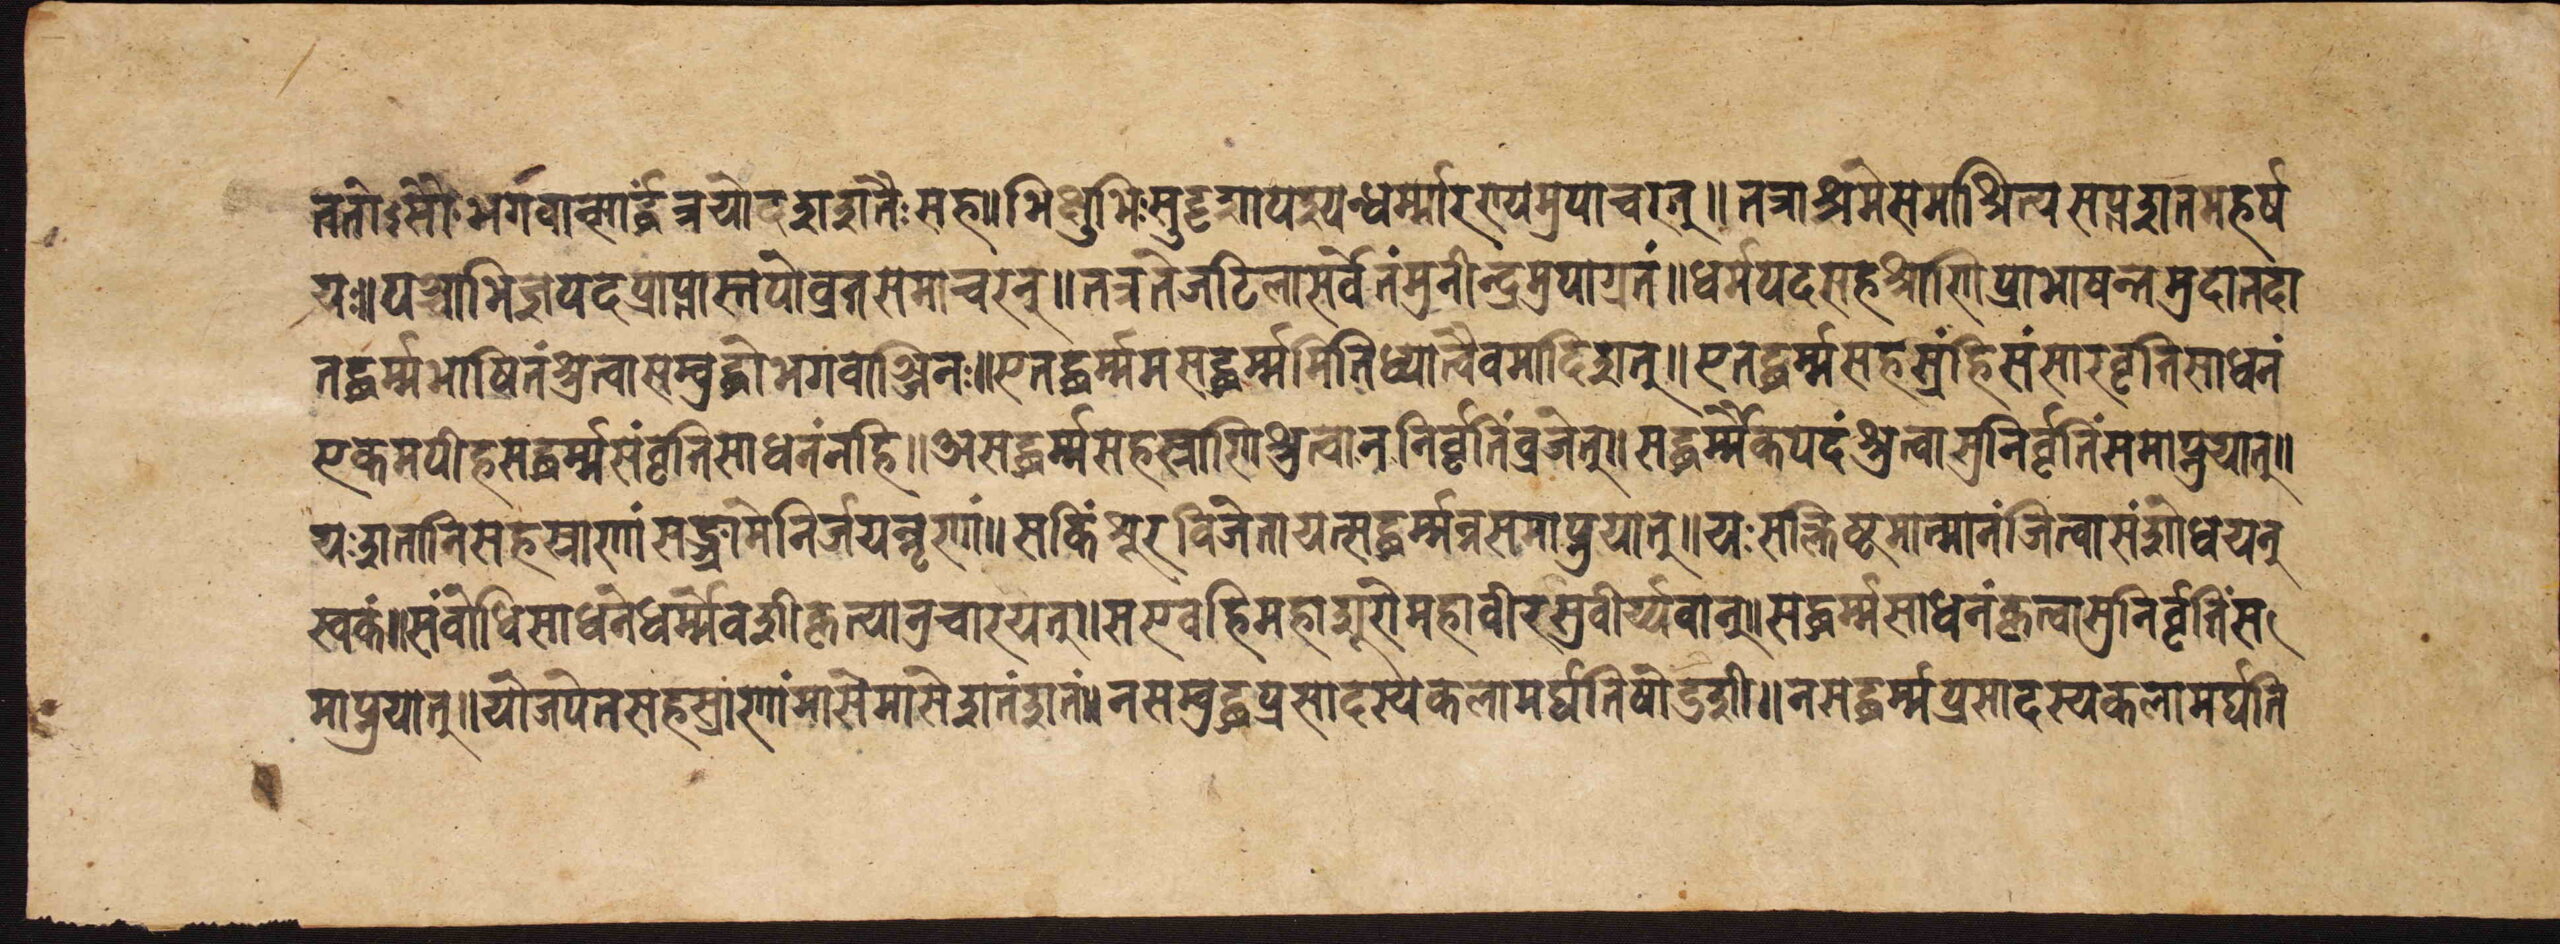 ततोऽसौ भगवान्सार्द्धं त्रयोदशशतैः सह॥ भिक्षुभिः सुदृशा पश्यन्धर्म्मारण्यमुपाचरत्॥ तत्राश्रमे समाश्रित्य सप्तशतमहर्ष
यः॥ पञ्चाभिज्ञपदप्राप्तास्तपोव्रतसमाचरन्॥ तत्र ते जटिला सर्वे तं मुनीन्द्रमुपागतं॥ धर्मपदसहश्राणि प्राभाषन्त मुदा तदा
तद्धर्म्मभाषितं श्रुत्वा सम्बुद्धो भगवाञ्जिनः॥ एतद्धर्म्ममसद्धर्म्ममिति ध्यात्वैवमादिशत्॥ एतद्धर्म्मसहस्रं हि संसारवृतिसाधनं
एकमपीह सद्धर्म्मसंवृतिसाधनं नहि॥ असद्धर्म्मसहस्राणि श्रुत्वा न निर्वृतिं व्रजेत्॥ सद्धर्म्मैकपदं श्रुत्वा सुनिर्वृतिं समाप्नुयात्॥
यः शतानि सहस्राणां सङ्ग्रामे निर्जयन्नृणां॥ स किं शूर विजेता यत्सद्धर्म्मन्न समाप्नुयात्॥ यः सक्लिष्टमात्मानं जित्वा संशोधयत्
स्वकं॥ संबोधिसाधने धर्म्मे वशीकृत्यानुचारयत्॥ स एव हि महाशूरो महावीरसुवीर्य्यवान्॥ सद्धर्म्मसाधनं कृत्वा सुनिर्वृतिं स
माप्नुयात्॥ यो जपेत सहस्राणां मासे मासे शतं शतं॥ न सम्बुद्धप्रसादस्य कलामर्घति षोडशी॥ न सद्धर्म्मप्रसादस्य कलामर्घति